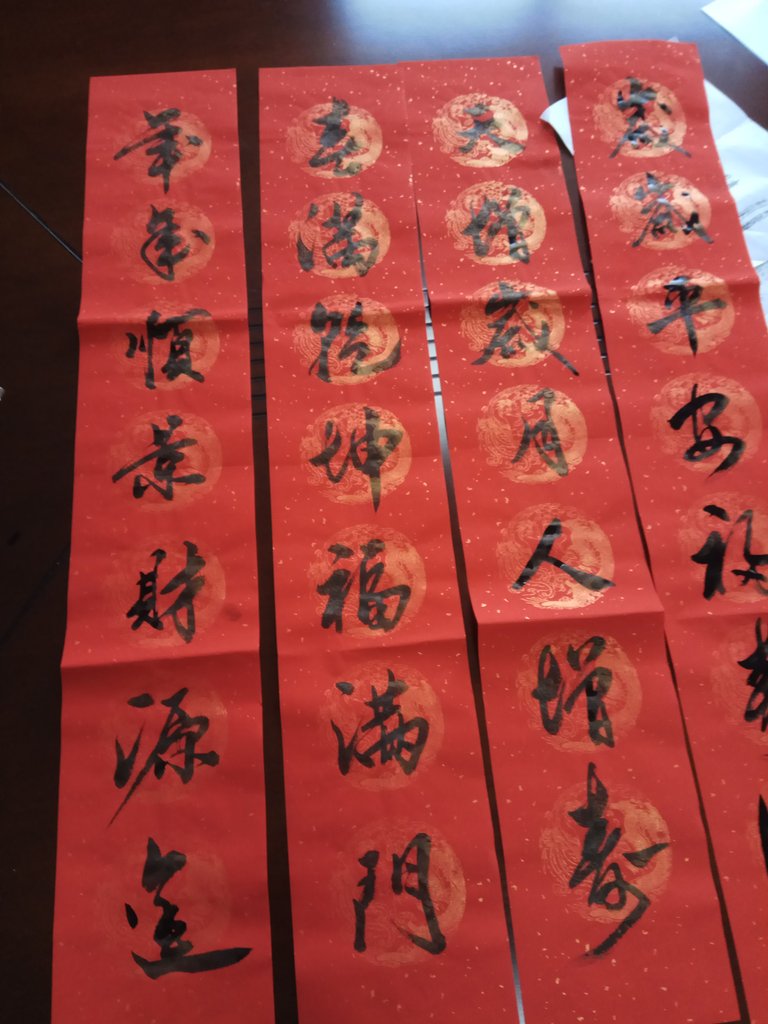 歲歲平安福
天增歲月人增壽
春满乾坤福满門
年年順景財源進